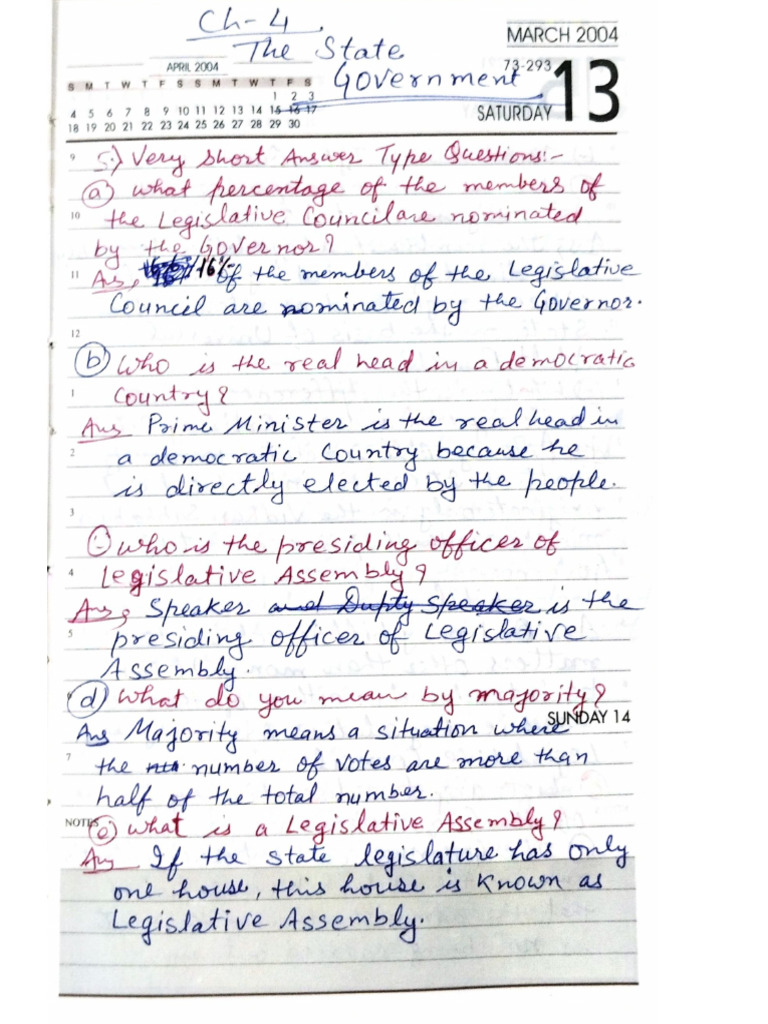 Ch-4
The State
Government
MARCH 2004
73-293
13
SATURDAY
APRIL 2004
S M T W T F S S M T W T F S
1 2 3
4 5 6 7 8 9 10 11 12 13 14 15 16 17
18 19 20 21 22 23 24 25 26 27 28 29 30
9 5.) Very Short Answer Type Questions:-
(a) What percentage of the members of
10 the Legislative Council are nominated
by the Governor?
11 Ans, 16% of the members of the Legislative
Council are nominated by the Governor.
12
(b) Who is the real head in a democratic
1 Country?
Ans Prime Minister is the real head in
2 a democratic Country because he
is directly elected by the people.
3
who is the presiding officer of
4 Legislative Assembly?
Ans, Speaker and Dupty Speaker is the
5 presiding officer of Legislative
Assembly.
(d) What do you mean by majority?
SUNDAY 14
Ans Majority means a situation where
7 the number of votes are more than
half of the total number.
NOTES (e) What is a Legislative Assembly?
Ans If the state legislature has only
one house, this house is known as
Legislative Assembly.